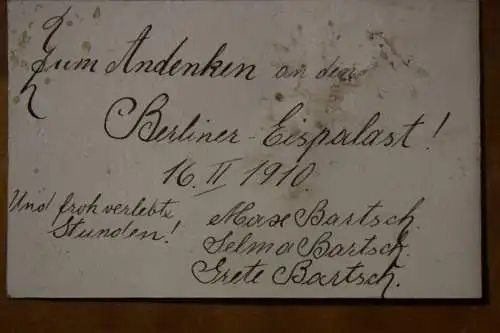 Zum Andenken an den
Berliner-Eispalast!
16. II 1910.
Und froh verlebte
Stunden!
Max Bartsch.
Selma Bartsch.
Grete Bartsch.